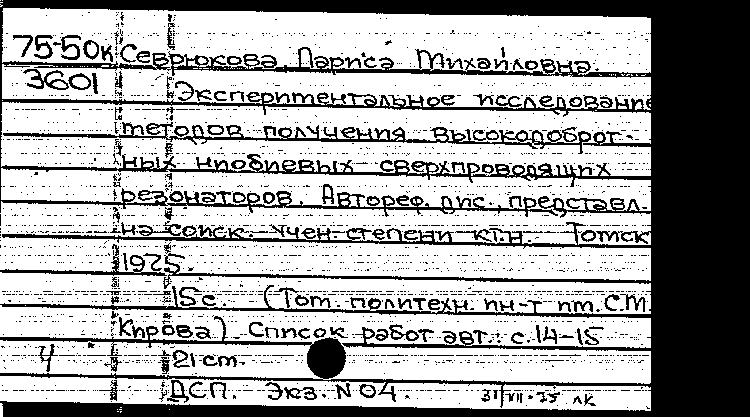 75-50к Севрюкова Лариса Михайловна.
3601 Экспериментальное исследование
методов получения высокодоброт-
ных ниобиевых сверхпроводящих
резонаторов. Автореф. дис., представл.
на соиск. учен. степени к.т.н. Томск
1975.
15с. (Том. политехн. ин-т им. С.М.
Кирова) Список работ авт.: с.14-15
4 21 см.
ДСП. Экз. N 04. 31/VII-75 лк